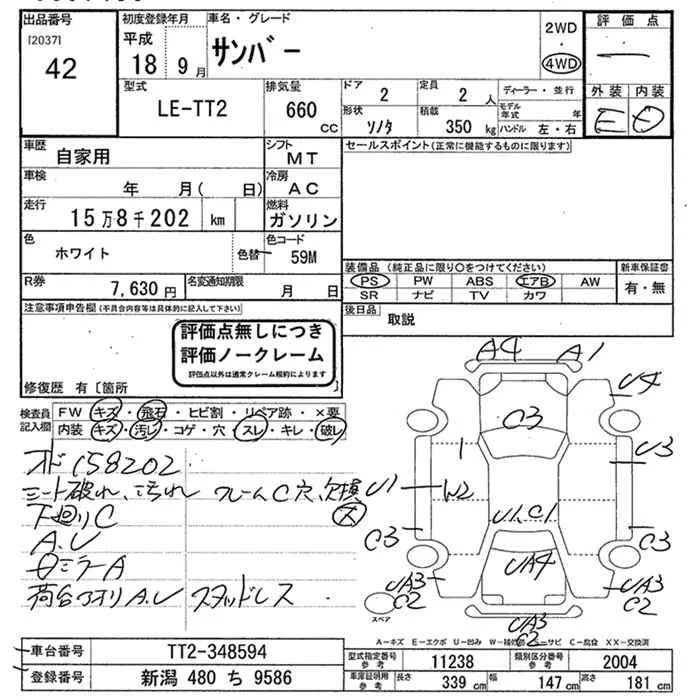 出品番号
[2037]
42
初度登録年月
平成
18 9月
車名・グレード
サンバー
2WD
・
4WD
評価点
—
外装 内装
E D
型式
LE-TT2
排気量
660 cc
ドア
2
定員
2 人
形状
ソノタ
積載
350 kg
ディーラー・並行
モデル年式 年
ハンドル 左・右
車歴
自家用
シフト
MT
車検
年 月( 日)
冷房
AC
走行
15万8千202 km
燃料
ガソリン
色
ホワイト
色替
色コード
59M
R券
7,630円
名変通知期限
月 日
セールスポイント(正常に機能するものに限ります)
装備品 (純正品に限り○をつけてください)
PS PW ABS エアB AW
SR ナビ TV カワ
新車保証書
有・無
後日品
取説
注意事項申告欄(不具合内容等は具体的に記入して下さい)
評価点無しにつき
評価ノークレーム
評価点以外は通常クレーム規約によります
修復歴 有 [箇所
検査員記入欄
FW キズ・飛石・ヒビ割・リペア跡・×要
内装 キズ・汚レ・コゲ・穴・スレ・キレ・破レ
オド158202
シート破れ、汚れ フレームC穴、欠損
大
下廻りC
A.U
ミラーA
荷台アオリA.U スタッドレス
A4 A1
U4
C3
1
U3
U1
W2
U1、C1
C3
C3
UA4
UA3
C2
UA3
C2
UA3
C2
スペア
A-キズ E-エクボ U-凹み W-補修跡 S-サビ C-腐食 XX-交換済
車台番号
TT2-348594
登録番号
新潟 480 ち 9586
型式指定番号
参考
11238
類別区分番号
参考
2004
車庫証明用
参考
長さ
339 cm
幅
147 cm
高さ
181 cm